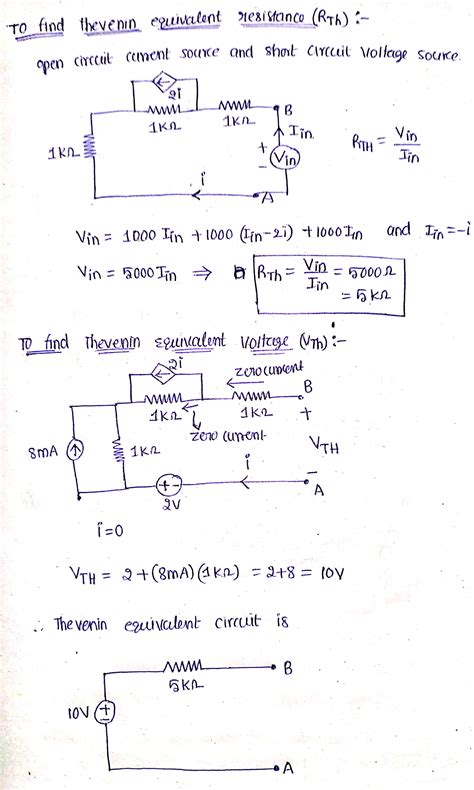 TO find thevenin equivalent resistance (RTh) :-
open circuit current source and short circuit voltage source.
2i
1KΩ
1KΩ
B
Iin
1KΩ
+
Vin
-
RTH = Vin / Iin
i
A
Vin = 1000 Iin + 1000 (Iin-2i) + 1000 Iin and Iin = -i
Vin = 5000 Iin ⇒ RTh = Vin / Iin = 5000Ω
= 5KΩ
TO find Thevenin equivalent voltage (VTh) :-
2i
zero current
B
1KΩ
1KΩ
+
zero current
8mA
1KΩ
VTH
i
-
+ -
A
2V
i=0
VTH = 2+(8mA)(1KΩ) = 2+8 = 10V
∴ Thevenin equivalent circuit is
B
5KΩ
10V
+
-
A